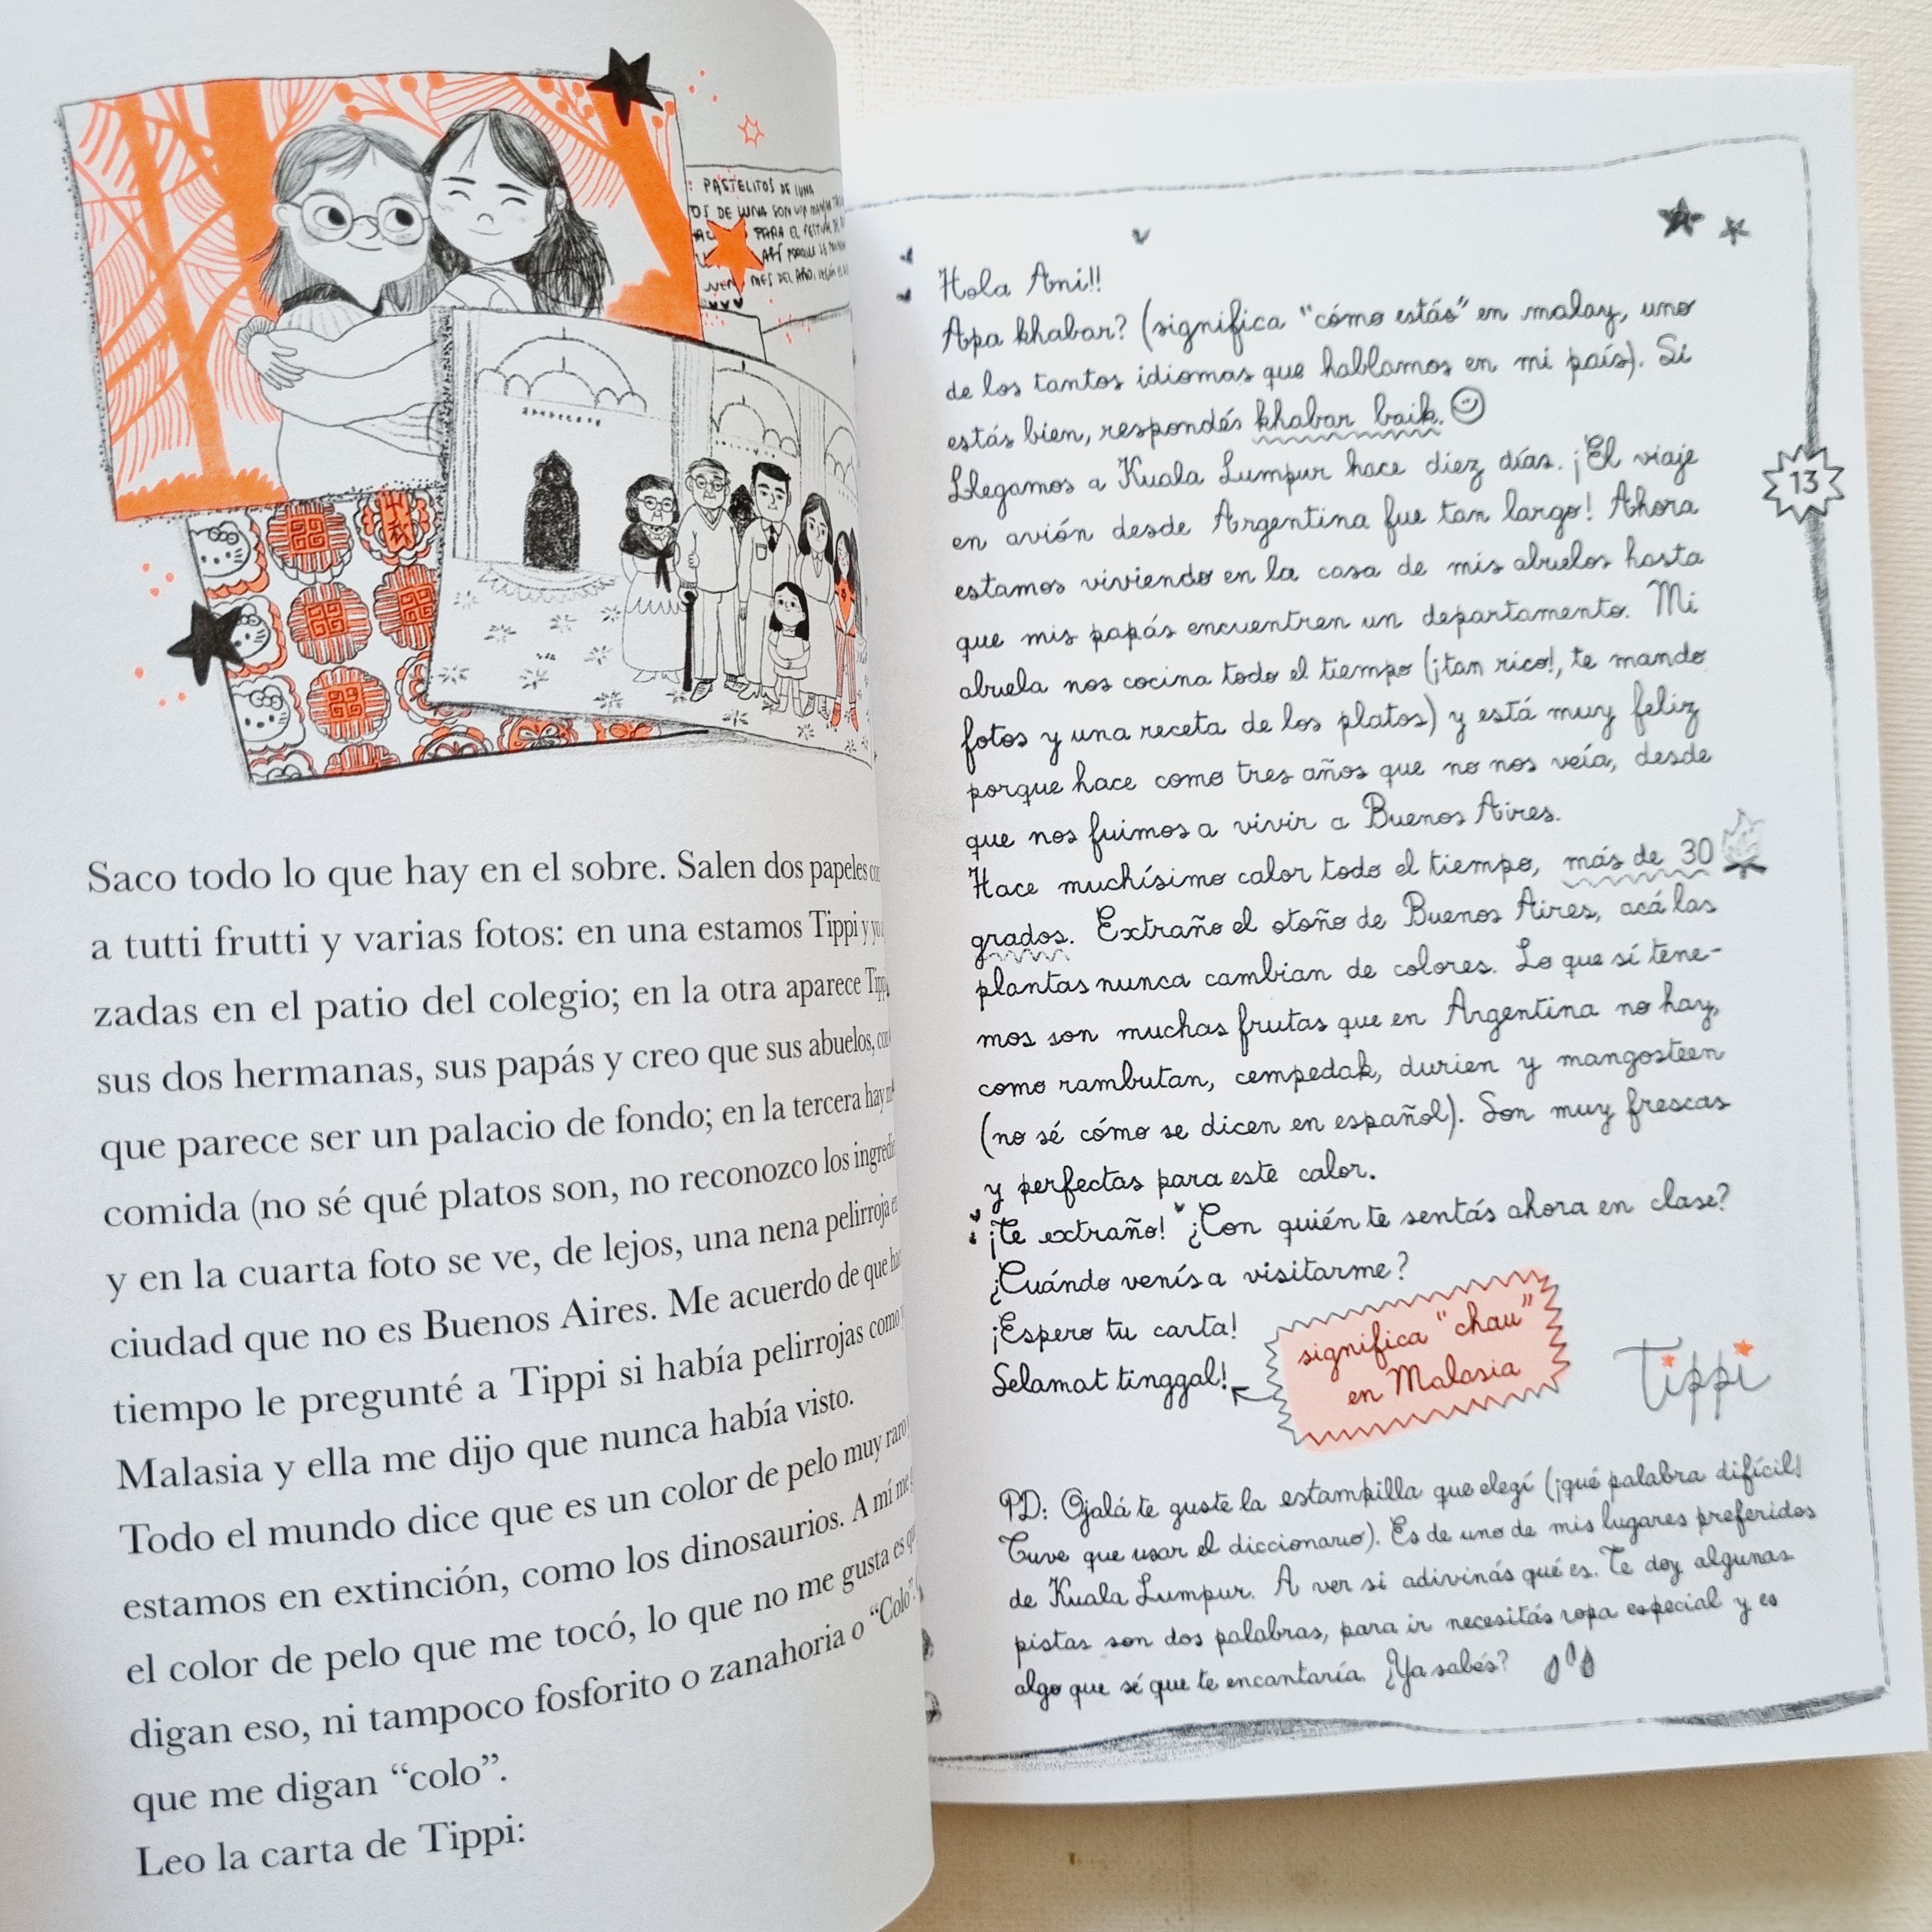 PASTELITOS DE LUNA
DE LUNA SON
PARA EL
MES DEL AÑO,
Saco todo lo que hay en el sobre. Salen dos papeles
a tutti frutti y varias fotos: en una estamos Tippi y yo
zadas en el patio del colegio; en la otra aparece
sus dos hermanas, sus papás y creo que sus abuelos,
que parece ser un palacio de fondo; en la tercera hay
comida (no sé qué platos son, no reconozco los
y en la cuarta foto se ve, de lejos, una nena pelirroja
ciudad que no es Buenos Aires. Me acuerdo de que
tiempo le pregunté a Tippi si había pelirrojas como
Malasia y ella me dijo que nunca había visto.
Todo el mundo dice que es un color de pelo muy raro
estamos en extinción, como los dinosaurios. A mí me
el color de pelo que me tocó, lo que no me gusta es
digan eso, ni tampoco fosforito o zanahoria o “Colo”.
que me digan “colo”.
Leo la carta de Tippi:
Hola Ani!!
Apa khabar? (significa “cómo estás” en malay, uno
de los tantos idiomas que hablamos en mi país). Si
estás bien, respondés khabar baik.
Llegamos a Kuala Lumpur hace diez días. ¡El viaje
en avión desde Argentina fue tan largo! Ahora
estamos viviendo en la casa de mis abuelos hasta
que mis papás encuentren un departamento. Mi
abuela nos cocina todo el tiempo (¡tan rico!, te mando
fotos y una receta de los platos) y está muy feliz
porque hace como tres años que no nos veía, desde
que nos fuimos a vivir a Buenos Aires.
Hace muchísimo calor todo el tiempo, más de 30
grados. Extraño el otoño de Buenos Aires, acá las
plantas nunca cambian de colores. Lo que sí tene-
mos son muchas frutas que en Argentina no hay,
como rambutan, cempedak, durien y mangosteen
(no sé cómo se dicen en español). Son muy frescas
y perfectas para este calor.
¡Te extraño! ¿Con quién te sentás ahora en clase?
¿Cuándo venís a visitarme?
¡Espero tu carta!
Selamat tinggal!
significa “chau”
en Malasia
Tippi
PD: Ojalá te guste la estampilla que elegí (¡qué palabra difícil!
Tuve que usar el diccionario). Es de uno de mis lugares preferidos
de Kuala Lumpur. A ver si adivinás qué es. Te doy algunas
pistas son dos palabras, para ir necesitás ropa especial y es
algo que sé que te encantaría. ¿Ya sabés?
13